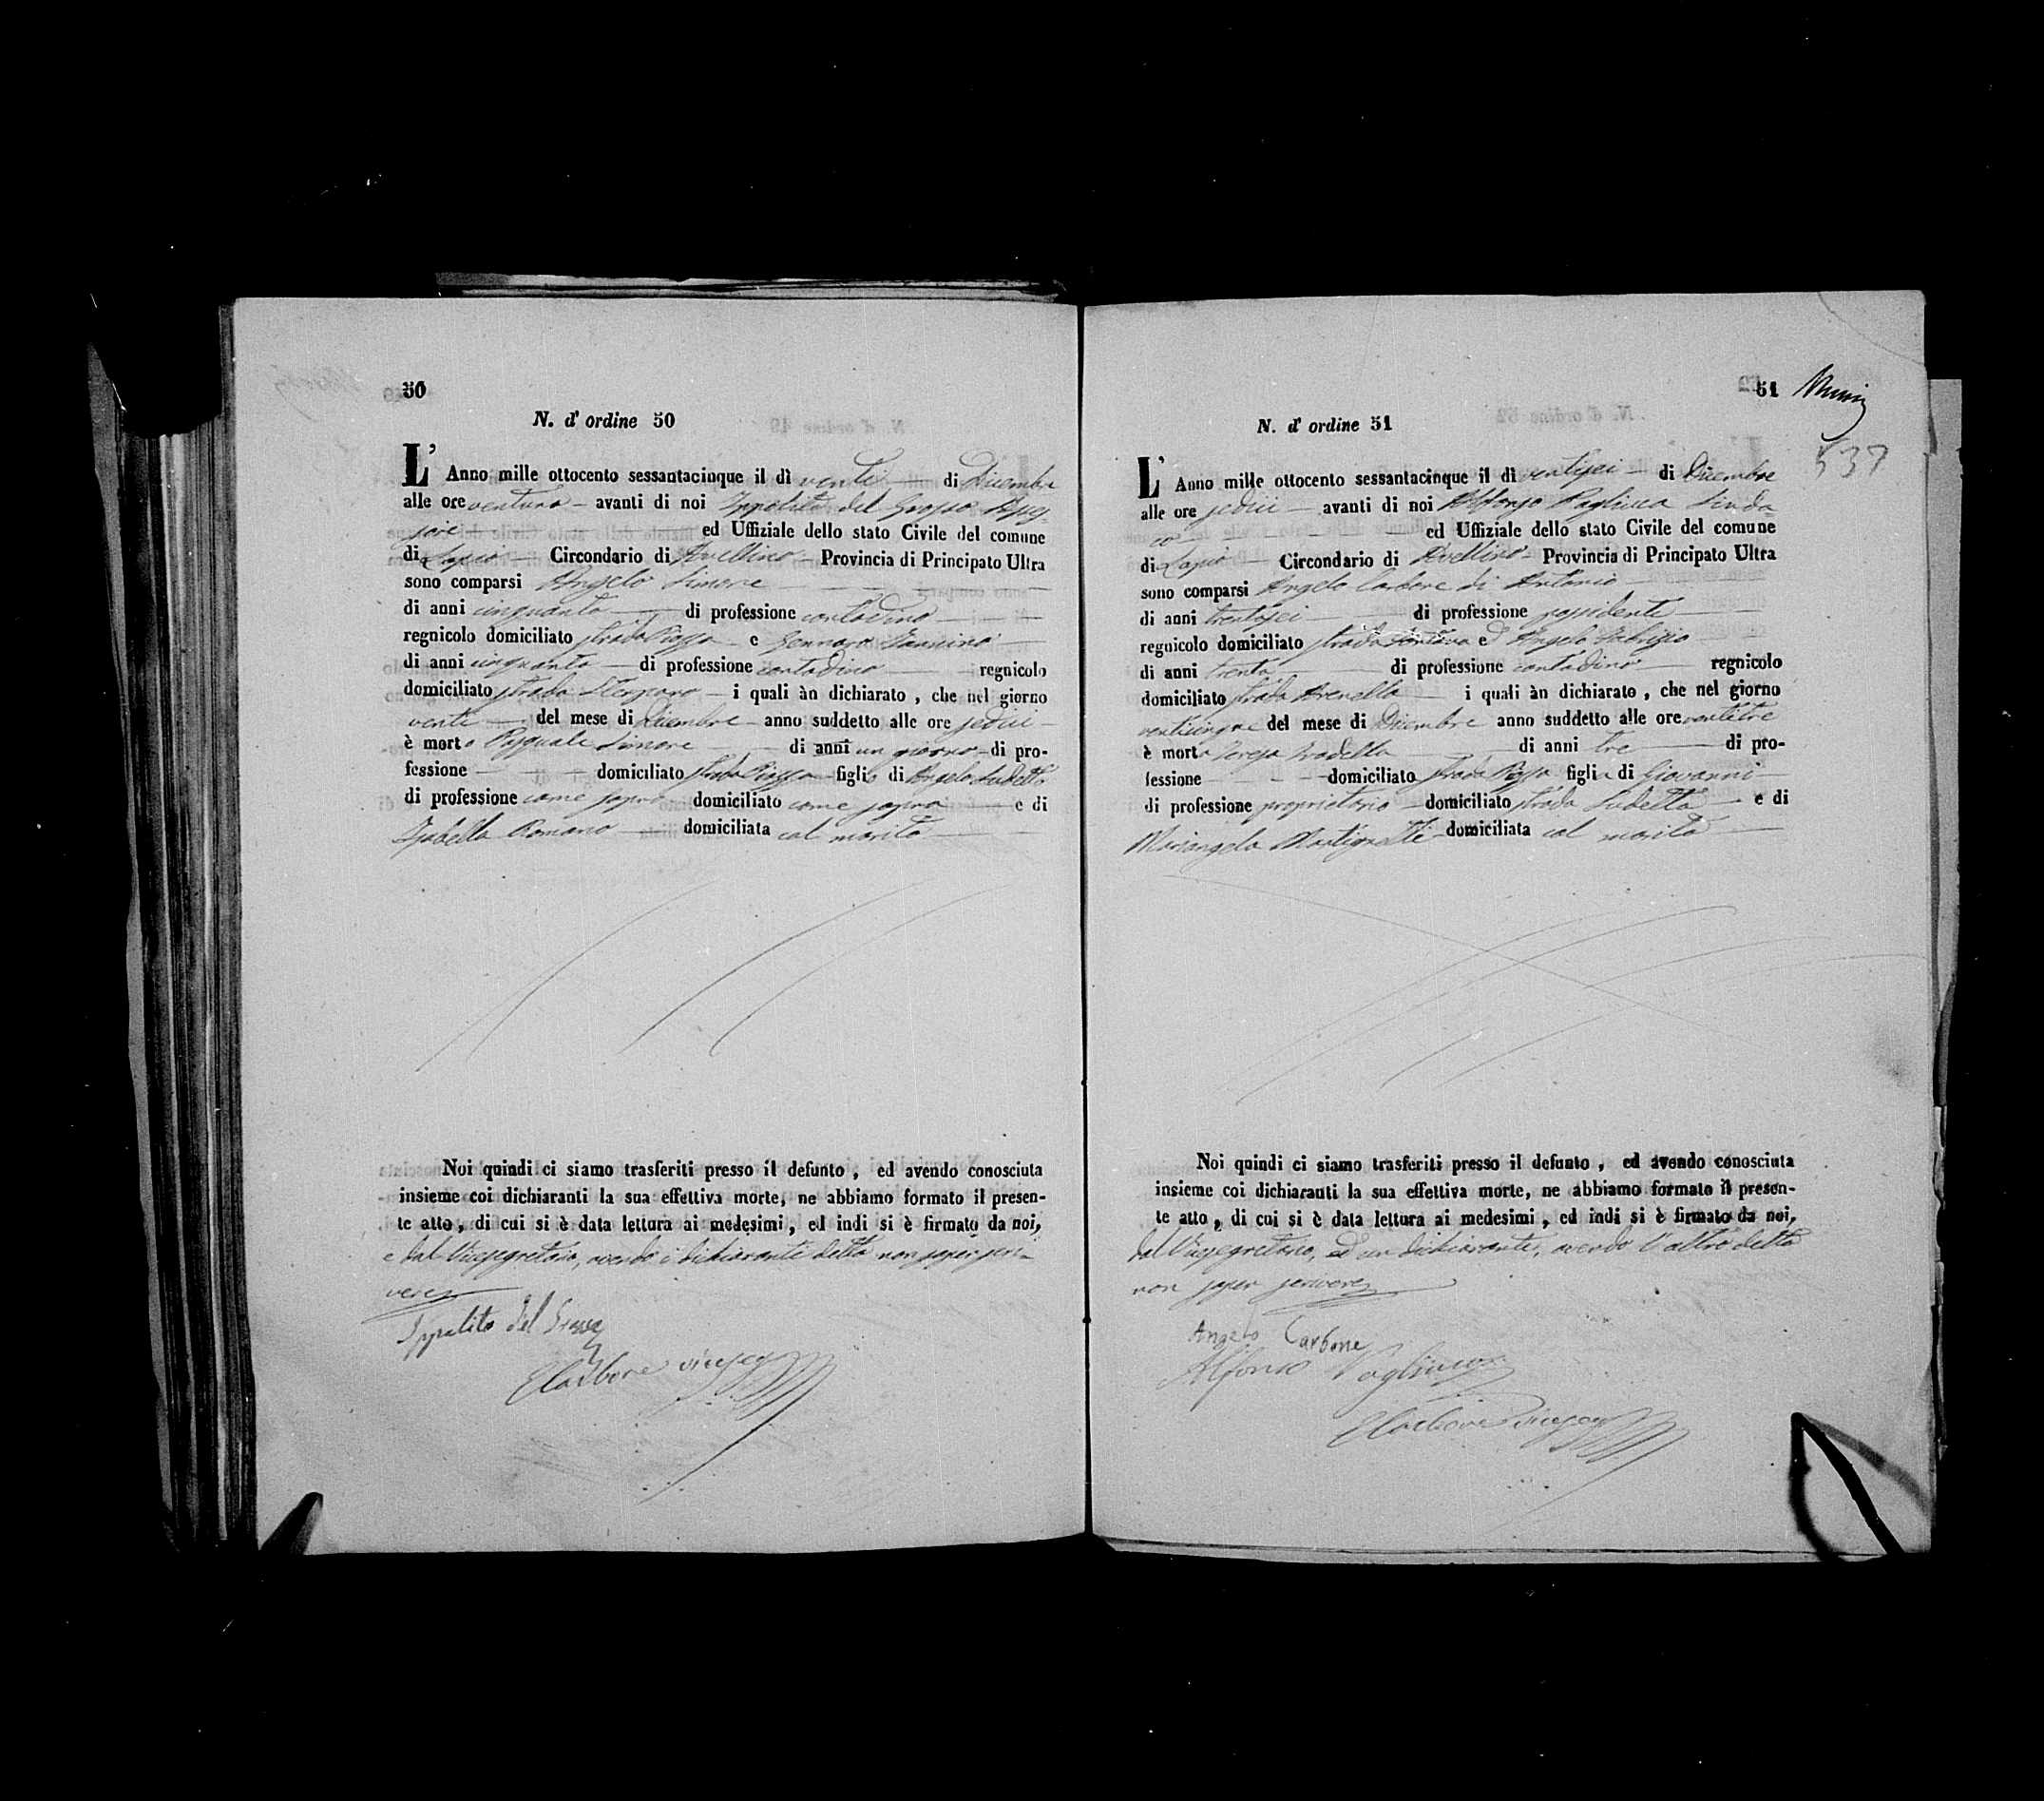 50
N. d' ordine 50
L' Anno mille ottocento sessantacinque il dì venti di Dicembre
alle ore ventuno avanti di noi Ippolito del Grosso Asses-
sore ed Uffiziale dello stato Civile del comune
di Lapio Circondario di Avellino Provincia di Principato Ultra
sono comparsi Angelo Simone
di anni cinquanta di professione contadino
regnicolo domiciliato strada Piazza e Gennaro Iannino
di anni cinquanta di professione contadino regnicolo
domiciliato strada i quali àn dichiarato, che nel giorno
venti del mese di Dicembre anno suddetto alle ore sedici
è morto Pasquale Simone di anni un giorno di pro-
fessione domiciliato strada Piazza figlio di Angelo sudetto
di professione come sopra domiciliato come sopra e di
Isabella Romano domiciliata col marito
Noi quindi ci siamo trasferiti presso il defunto, ed avendo conosciuta
insieme coi dichiaranti la sua effettiva morte, ne abbiamo formato il presen-
te atto, di cui si è data lettura ai medesimi, ed indi si è firmato da noi,
e dal Vicesegretario, avendo i dichiaranti detto non saper scri-
vere
Ippolito del Grosso
Carbone viceseg
51
537
N. d' ordine 51
L' Anno mille ottocento sessantacinque il dì ventisei di Dicembre
alle ore sedici avanti di noi Alfonso Pagliuca Sinda-
co ed Uffiziale dello stato Civile del comune
di Lapio Circondario di Avellino Provincia di Principato Ultra
sono comparsi Angelo Carbone di Antonio
di anni trentasei di professione possidente
regnicolo domiciliato strada Fontana e D'Angelo Fabrizio
di anni trenta di professione contadino regnicolo
domiciliato strada Arenella i quali àn dichiarato, che nel giorno
venticinque del mese di Dicembre anno suddetto alle ore ventitre
è morta Teresa Tradella di anni tre di pro-
fessione domiciliato strada Piazza figlia di Giovanni
di professione proprietario domiciliato strada sudetta e di
Mariangela Martignetti domiciliata col marito
Noi quindi ci siamo trasferiti presso il defunto, ed avendo conosciuta
insieme coi dichiaranti la sua effettiva morte, ne abbiamo formato il presen-
te atto, di cui si è data lettura ai medesimi, ed indi si è firmato da noi,
dal Vicesegretario, ed un dichiarante, avendo l'altro detto
non saper scrivere
Angelo Carbone
Alfonso Pagliuca
Carbone viceseg